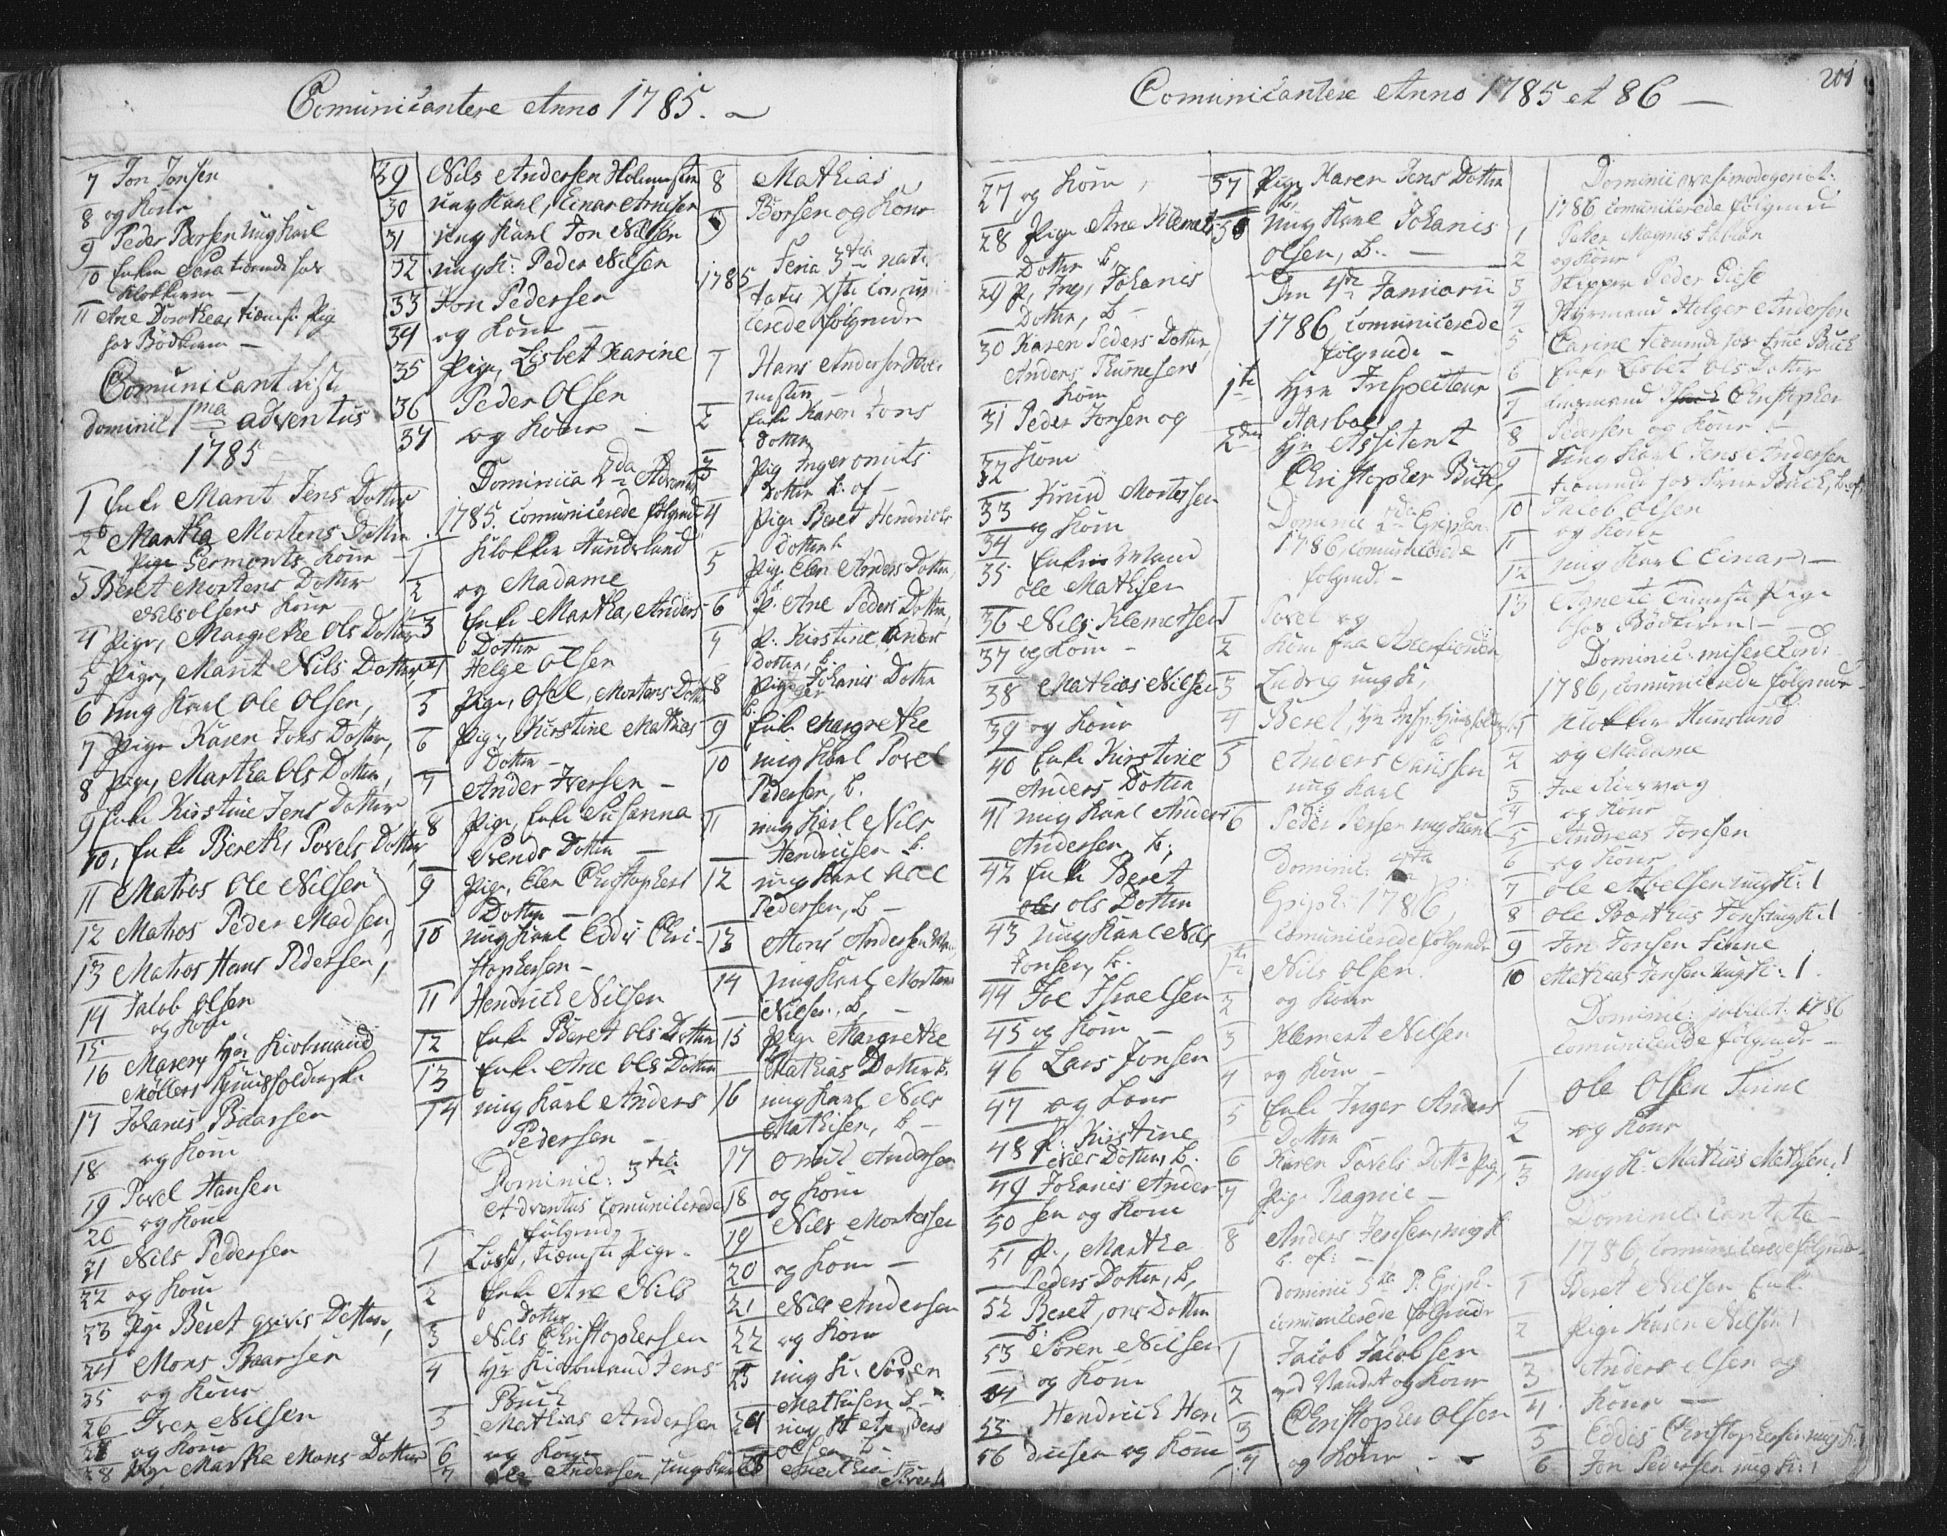 Comunicantere Anno 1785.
7 Jon Jonsen
8 og Kone
9 Peder Borsen ung Karl
10 Enke Sara tienende hos
Klokkeren
11 Ane Dorothea, tienist Pig
hos Bødkeren
Comunicant List
Dominic 1ma adventus
1785
1 Enke Marit Jens Dotter
2 Martha Mortens Dotter
Kone
3 Beret Mortens Dotter
Nils Olsens Kone
4 Pige, Margrethe Ols Dotter
5 Pige, Marit Nils Dotter
6 ung Karl Ole Olsen,
7 Pige Karen Jons Dotter,
8 Pige, Martha Ols Dotter,
9 Enke Kirstine Jens Dotter
10, Enke Bereth, Povels Dotter
11 Matros Ole Nilsen
12 Matros Peder Madsen,
13 Matros Hans Pedersen,
14 Jacob Olsen
og Kone
15
16 Maren Hr. Kiobmand
Møllers Huusholderske
17 Johanis Baarsen
18 og Kone
19 Povel Hansen
20 og Kone
21 Nils Pedersen
22 og Kone
23 Pige Beret Dotter,
24 Mons Baarsen
25 og Kone
26 Iver Nilsen
27 og Kone
28 Pige Martha Mons Dotter
39 Nils Andersen
30 ung Karl, Einar Arnesen
31 ung Karl Jon Nilsen
32 ung K: Peder Nilsen
33 Jon Pedersen
34 og Kone
35 Pige, Lisbet Karine
36 Peder Olsen
37 og Kone
Dominica 2da Advent
1785. comunicerede følgende
1 Klokker Hundslund
2 og Madame
3 Enke Martha, Anders
Dotter
4 Helge Olsen
5 Pige, Osel, Mortens Dotter
6 Pige, Kirstine Mathias
Dotter
7 Ander Iversen
8 Pige, Enke Susanna
Svends Dotter
9 Pige, Elen Christophers
Dotter
10 ung Karl Eddis Chri-
stophersen
11 Hendrich Nilsen
12 Enke Beret Ols Dotter
13 Enke Ane Ols Dotter
14 ung Karl Anders
Pedersen
Dominic: 3tie
Adventus Comunicerede
følgende
1 tieniste Pige
2 Enke Ane Nils
Dotter
3 Nils Christophersen
4 Hr Kiobmand Jens
Buch
5 Mathias Andersen
6 og Kone
7 Ole Andersen ung Karl
8 Mathias
9 Borsen og Kone
1785 Feria 3tia nati-
tatis Xsti comuni-
cerede følgende
1 Hans Andersen
2 Enke Karen Jons
Dotter
3 Pig Inger
Dotter
4 Pige Beret Hendrichs
Dotter
5 Pig Elen Anders Dotter
6 P. Ane Peders Dotter
7 P. Kirstine Anders
Dotter, b.
8 Pig Johanis Dotter
9 Enke Margrethe
10 ung Karl Povel
Pedersen, b.
11 ung Karl Nils
Hendricsen b.
12 ung Karl
Pedersen, b
13 Mons Andersen
14 ung Karl Morten
Nilsen, b.
15 Pige Margrethe
Mathias Dotter b.
16 ung Karl Nils
Mathisen, b
17 Andersen
18 og Kone
19 Nils Mortensen
20 og Kone
21 Nils Andersen
22 og Kone
23 ung K: Søren
Mathisen b
24 ung K Anders
Olsen b
Comunicantere Anno 1785 et 86
201
27 og Kone,
28 Pige Ane Klemets
Dotter b,
29 P, Johanis
Dotter, b
30 Karen Peders Dotter,
Anders
Kone
31 Peder Jonsen og
32 Kone
33 Knud Mortensen
34 og Kone
35 Enke Mand
Ole Mathisen
36 Nils Klemetsen
37 og Kone
38 Mathias Nilsen
39 og Kone
40 Enke Kirstine
Anders Dotter
41 ung Karl Anders
Andersen b,
42 Enke Beret
Ols Dotter
43 ung Karl Nils
Jonsen, b.
44 Joe Israelsen
45 og Kone
46 Lars Jonsen
47 og Kone
48 P. Kirstine
Dotter, b.
49 Johanes Ander-
50 sen og Kone
51 P., Martha
Peders Dotter, b,
52 Beret, Dotter
53 Søren Nilsen
54 og Kone
55 Hendrich Hen
56 dricsen og Kone
57 Pige Karen Jens Dotter
58 ung Karl Johanis
Olsen, b.
Den Januarii
1786 comunicerede
følgende
1te Hrr Inspecteur
Aarboe
2den Hr Assistent
Christopher Buch,
Dominic 2da Epiphan
1786, comunicerede
følgende
1 Povel og
2 Kone
3 Ludvig ung K,
4 Beret,
5 Anders
ung Karl
6 Peder Persen ung Karl
Dominic. 4ta
Epiph: 1786
Comunicerede følgende
1te Nils Olsen
2 og Kone
3 Klement Nilsen
4 og Kone
5 Enke Inger Anders
Dotter
6 Karen Povels Dottr Pig,
7 Pige Ragnie
8 Anders Jensen, ung K
b. of:
Dominic 5te P. Epiph.
comunicerede følgende
1 Jacob Jacobsen
2 ved Vandet og Kone
3 Christopher Olsen
4 og Kone
Dominic qvasimodogenit:
1786 comunicerede følgende
1 Peter Magnus Fabian
2 og Kone
3 Skipper Peder
4 Styrmand Holger Andersen
5 Carine tienende hos Buch
6 Enke Lisbet Ols Dotter
7 Christopher
8 Pedersen og Kone
9 Ung Karl Jens Andersen
tienende hos Buch, b. of,
10 Jacob Olsen
11 og Kone
12 ung Karl Einar
13 Agnete Tieniste Pige
hos Bødkeren
Dominic: misericord:
1786, comunicerede følgende
1 Klokker Hunslund
2 og Madame
3 Joe
4 og Kone
5 Andreas Jonsen
6 og Kone
7 Ole Abelsen ung K: 1
8 Ole Barthus Jons: ung K: 1
9 Jon Jonsen Finne
10 Mathias Jensen ung K: 1.
Dominic: jubilat: 1786
comunicerede følgende
1 Ole Olsen Finne
2 og Kone
3 ung K: Mathias Mathisen: 1
Dominic: Cantate
1786, Comunicerede følgende
1 Beret Nilsen Enke
2 Pige Karen Nilsen 1
3 Anders Olsen og
4 Kone
5 Eddis Christophersen ung K: 1
6 Jon Pedersen ung K: 1